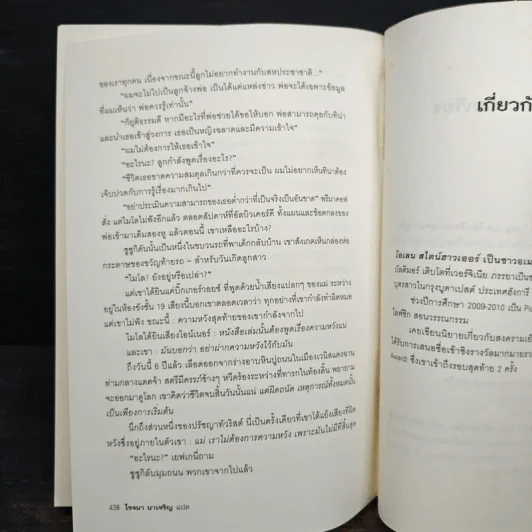 ของเราทุกคน เนื่องจากขณะนี้ลูกไม่อยากทำงานกับสหประชาชาติ..."
"ผมจะไม่ไปเป็นลูกจ้างพ่อ เป็นได้แค่แหล่งข่าว พ่อจะได้เฉพาะข้อมูล
ที่ผมเห็นว่า พ่อควรรู้เท่านั้น"
"ก็ยุติธรรมดี หากมีอะไรที่พ่อช่วยได้ขอให้บอก พ่อสามารถคุยกับทีน่า
และนำเธอเข้าสู่วงการ เธอเป็นหญิงฉลาดและมีความเข้าใจ"
"ผมไม่ต้องการให้เธอเข้าใจ"
"อะไรนะ? ลูกกำลังพูดเรื่องอะไร?"
"ชีวิตเธอขาดความสมดุลเกินกว่าที่ควรจะเป็น ผมไม่อยากเห็นทีน่าต้อง
เจ็บปวดกับการรู้เรื่องมากเกินไป"
"อย่าประเมินความสามารถของเธอต่ำกว่าที่เป็นจริงเป็นอันขาด" พรีมาคอฟ
สั่ง แต่ไมโลไม่ฟังอีกแล้ว ตลอดสัปดาห์ที่อัลบิวเคอร์คี ทั้งแผนและข้อตกลงของ
พ่อเข้ามาเต็มสองหู แล้วตอนนี้ เขาเหลืออะไรบ้าง?
ชูชูก็คันนั้นเป็นหนึ่งในขบวนรถที่พาเด็กกลับบ้าน เขาสังเกตเห็นกล่องห่อ
กระดาษของขวัญท้ายรถ - สำหรับวันเกิดลูกสาว
"ไมโล? ยังอยู่หรือเปล่า?"
แต่เขาได้ยินแค่บิ๊กเกอร์วอยซ์ ที่พูดด้วยน้ำเสียงแปลกๆ ของแม่ ระหว่าง
อยู่ในห้องขังชั้น 19 เสียงนี้บอกเขาตลอดเวลาว่า ทุกอย่างที่เขากำลังทำผิดหมด
แต่เขาไม่ฟัง ขณะนี้ : ความหวังสุดท้ายของเขากำลังจากไป
ไมโลได้ยินเสียงไอน์เนอร์ : หนังสือเล่มนั้นต้องพูดเรื่องความหวังแน่
และเขา : มันบอกว่า อย่าฝากความหวังไว้กับมัน
ถึงวันนี้ 6 ปีแล้ว เลือดออกจากร่างอาบหินปูถนนในเมืองเวนิสแดงฉาน
ท่ามกลางแดดจ้า สตรีมีครรภ์ข้างๆ หวีดร้องระหว่างที่ทารกในท้องดิ้น พยายาม
จะออกมาดูโลก เขาคิดว่าชีวิตจบสิ้นวันนั้นแน่ แต่ผิดถนัด เหตุการณ์ทั้งหมดนั้น
เป็นเพียงการเริ่มต้น
นึกถึงส่วนหนึ่งของปรัชญาทัวริสต์ นี่เป็นครั้งเดียวที่เขาโต้แย้งเสียงที่ผิด
หวังซึ่งอยู่ภายในตัวเขา : แม่ เราไม่ต้องการความหวัง เพราะมันไม่มีที่สิ้นสุด
"อะไรนะ?" เยฟเกนี่ถาม
ชูชูกิลับมุมถนน พวกเขาจากไปแล้ว
438 โรจนา นาเจริญ แปล
เกี่ยวกั
โอเลน สไตน์ฮาวเออร์ เป็นชาวอเม
บัลติมอร์ เติบโตที่เวอร์จิเนีย ภรรยาเป็นช
บุตรสาวในกรุงบูดาเปสต์ ประเทศฮังการี
ช่วงปีการศึกษา 2009-2010 เป็น Pic
ไลพ์ซิก สอนวรรณกรรม
เคยเขียนนิยายเกี่ยวกับสงครามเย็
ได้รับการเสนอชื่อเข้าชิงรางวัลมากมายรว
Award) ซึ่งเขาเข้าถึงรอบสุดท้าย 2 ครั้ง